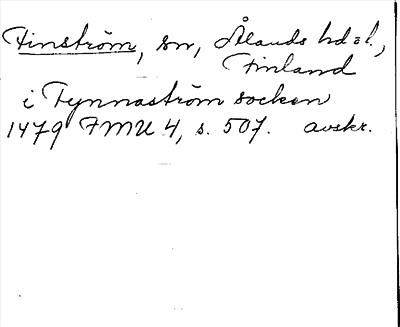 Finström, sn, Ålands hd o l.,
Finland
i Fynnaström socken
1479 FMU 4, s. 507. avskr.